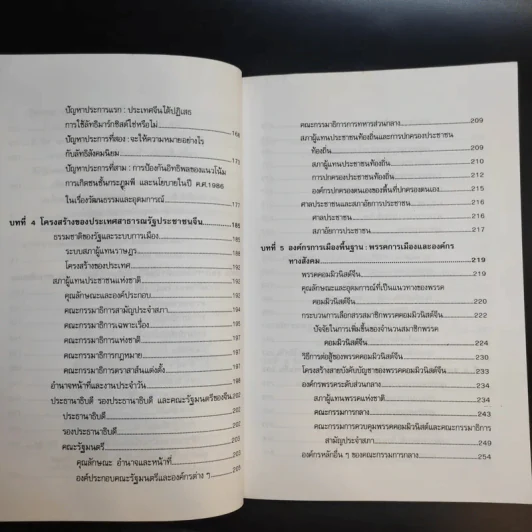 ปัญหาประการแรก : ประเทศจีนได้ปฏิเสธ
การใช้ลัทธิมาร์กซิสต์ใช่หรือไม่ 168
ปัญหาประการที่สอง : จะให้ความหมายอย่างไร
กับลัทธิสังคมนิยม
ปัญหาประการที่สาม : การป้องกันอิทธิพลของแนวโน้ม
การเกิดชนชั้นกระฎุมพี และนโยบายในปี ค.ศ.1986
ในเรื่องวัฒนธรรมและอุดมการณ์ 177
บทที่ 4 โครงสร้างของประเทศสาธารณรัฐประชาชนจีน 185
ธรรมชาติของรัฐและระบบการเมือง 190
ระบบสภาผู้แทนราษฎร 191
โครงสร้างของประเทศ 192
สภาผู้แทนประชาชนแห่งชาติ 192
คุณลักษณะและองค์ประกอบ 192
คณะกรรมาธิการสามัญประจำสภา 194
คณะกรรมาธิการเฉพาะเรื่อง 197
คณะกรรมาธิการแห่งชาติ 197
คณะกรรมาธิการกฎหมาย 197
คณะกรรมาธิการตราสาส์นแต่งตั้ง 197
อำนาจหน้าที่และงานประจำวัน 198
ประธานาธิบดี รองประธานาธิบดี และคณะรัฐมนตรีของจีน 202
ประธานาธิบดี 202
รองประธานาธิบดี 205
คณะรัฐมนตรี 205
คุณลักษณะ อำนาจและหน้าที่ 205
องค์ประกอบคณะรัฐมนตรีและองค์กรต่าง ๆ 205
คณะกรรมาธิการการทหารส่วนกลาง 209
สภาผู้แทนประชาชนท้องถิ่นและการปกครองประชาชน
ท้องถิ่น 209
สภาผู้แทนประชาชนท้องถิ่น 210
การปกครองประชาชนท้องถิ่น 212
องค์กรปกครองตนเองของพื้นที่ปกครองตนเอง 214
ศาลประชาชนและสภาอัยการประชาชน 216
ศาลประชาชน 216
สภาอัยการประชาชน 217
บทที่ 5 องค์กรการเมืองพื้นฐาน : พรรคการเมืองและองค์กร
ทางสังคม 219
พรรคคอมมิวนิสต์จีน 219
คุณลักษณะและอุดมการณ์ที่เป็นแนวทางของพรรค
คอมมิวนิสต์จีน 220
กระบวนการเลือกสรรสมาชิกพรรคคอมมิวนิสต์จีน 222
ปัจจัยในการเพิ่มขึ้นของจำนวนสมาชิกพรรค
คอมมิวนิสต์จีน 224
วิธีการต่อสู้ของพรรคคอมมิวนิสต์จีน 230
โครงสร้างสายบังคับบัญชาของพรรคคอมมิวนิสต์จีน 233
องค์กรพรรคระดับส่วนกลาง 234
สภาผู้แทนพรรคแห่งชาติ 234
คณะกรรมการกลาง 243
คณะกรรมการควบคุมพรรคคอมมิวนิสต์และคณะกรรมาธิการ
สามัญประจำสภา 249
องค์กรหลักอื่น ๆ ของคณะกรรมการกลาง 254